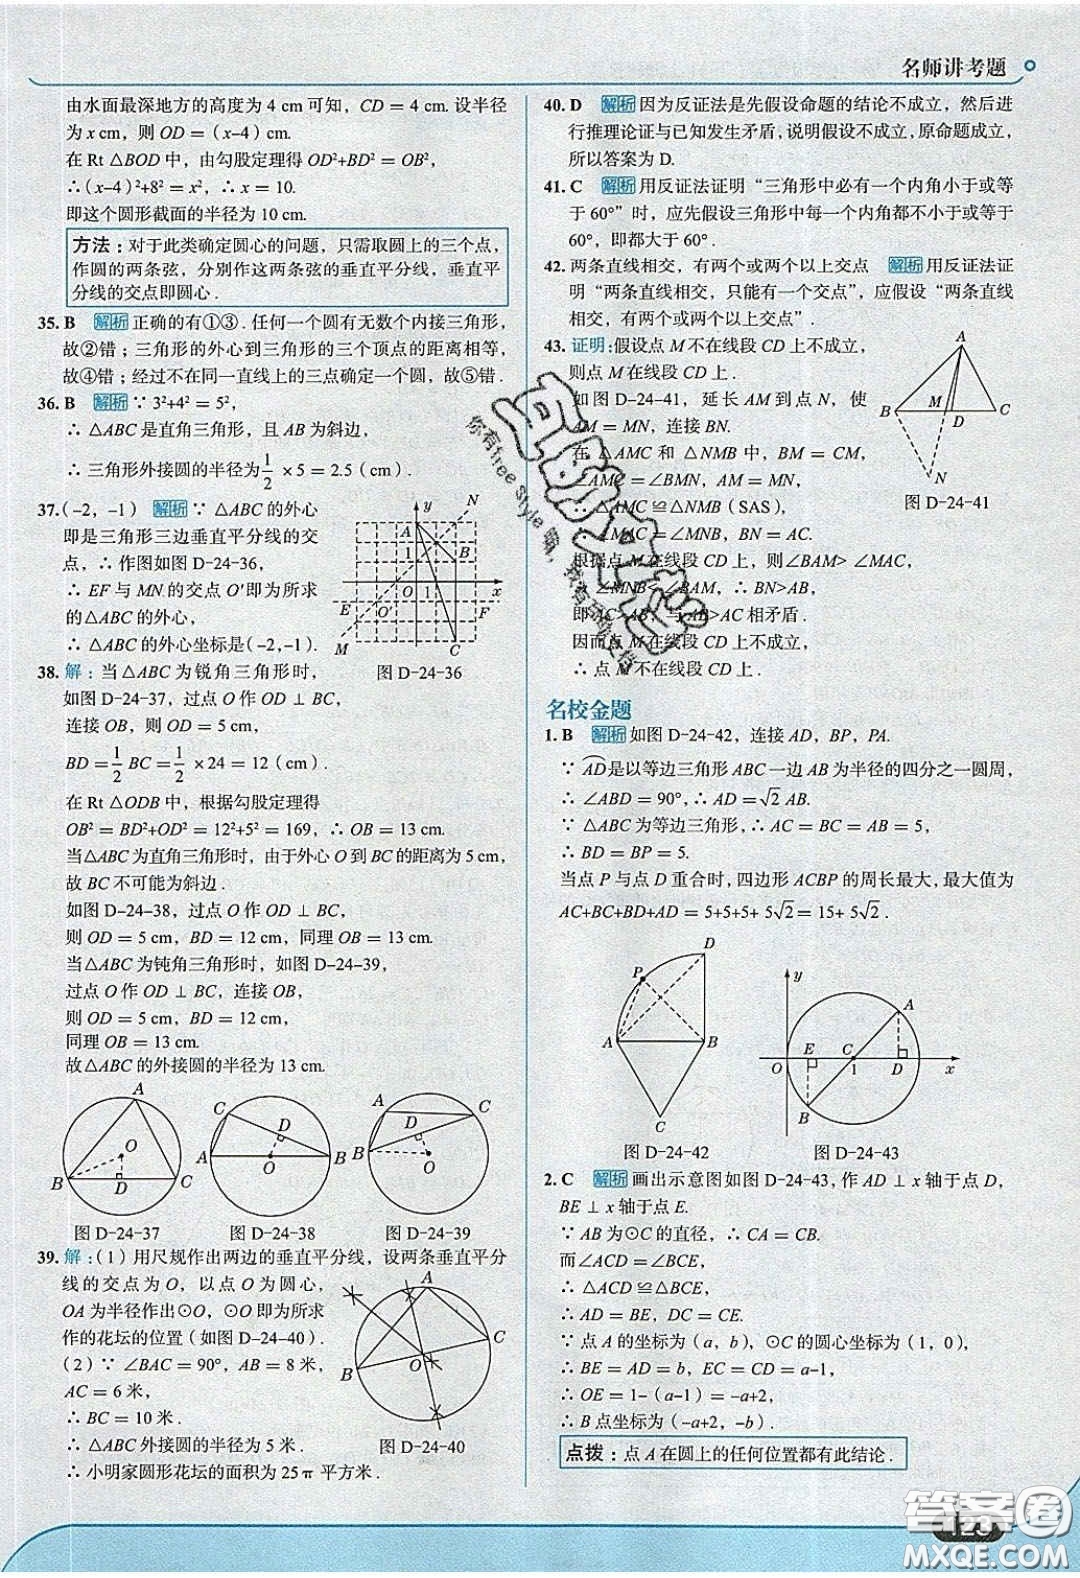 名师讲考题
由水面最深地方的高度为 4 cm 可知，CD = 4 cm. 设半径
为 x cm，则 OD =（x–4）cm.
在 Rt △BOD 中，由勾股定理得 OD²+BD² = OB²，
∴（x–4）²+8² = x²，∴ x = 10.
即这个圆形截面的半径为 10 cm.
方法：对于此类确定圆心的问题，只需取圆上的三个点，
作圆的两条弦，分别作这两条弦的垂直平分线，垂直平
分线的交点即圆心 .
35. B 解析 正确的有①③ . 任何一个圆有无数个内接三角形，
故②错；三角形的外心到三角形的三个顶点的距离相等，
故④错；经过不在同一直线上的三点确定一个圆，故⑤错 .
36. B 解析 ∵ 3²+4² = 5²，
∴ △ABC 是直角三角形，且 AB 为斜边，
∴ 三角形外接圆的半径为 1/2 ×5 = 2.5（cm）.
37.（–2，–1） 解析 ∵ △ABC 的外心
即是三角形三边垂直平分线的交
点，∴ 作图如图 D-24-36，
∴ EF 与 MN 的交点 O′即为所求
的△ABC 的外心，
∴ △ABC 的外心坐标是（–2，–1）.
y N A 1 B E O′ O 1 F x M C
图 D-24-36
38. 解：当△ABC 为锐角三角形时，
如图 D-24-37，过点 O 作 OD ⊥ BC，
连接 OB，则 OD = 5 cm，
BD = 1/2 BC = 1/2 ×24 = 12（cm）.
在 Rt △ODB 中，根据勾股定理得
OB² = BD²+OD² = 12²+5² = 169，∴ OB = 13 cm.
当△ABC 为直角三角形时，由于外心 O 到 BC 的距离为 5 cm，
故 BC 不可能为斜边 .
如图 D-24-38，过点 O 作 OD ⊥ BC，
则 OD = 5 cm，BD = 12 cm，同理 OB = 13 cm.
当△ABC 为钝角三角形时，如图 D-24-39，
过点 O 作 OD ⊥ BC，连接 OB，
则 OD = 5 cm，BD = 12 cm，
同理 OB = 13 cm.
故△ABC 的外接圆的半径为 13 cm.
A O B D C
C D A O B
A C D B O
图 D-24-37 图 D-24-38 图 D-24-39
39. 解：（1）用尺规作出两边的垂直平分线，设两条垂直平分
线的交点为 O，以点 O 为圆心，
OA 为半径作出⊙O，⊙O 即为所求
作的花坛的位置（如图 D-24-40）.
（2）∵ ∠BAC = 90°，AB = 8 米，
AC = 6 米，
∴ BC = 10 米 .
∴ △ABC 外接圆的半径为 5 米 .
∴ 小明家圆形花坛的面积为 25π 平方米 .
A C O B
图 D-24-40
40. D 解析 因为反证法是先假设命题的结论不成立，然后进
行推理论证与已知发生矛盾，说明假设不成立，原命题成立，
所以答案为 D.
41. C 解析 用反证法证明“三角形中必有一个内角小于或等
于 60°”时，应先假设三角形中每一个内角都不小于或等于
60°，即都大于 60° .
42. 两条直线相交，有两个或两个以上交点 解析 用反证法证
明“两条直线相交，只能有一个交点”，应假设“两条直线
相交，有两个或两个以上交点”.
43. 证明：假设点 M 不在线段 CD 上不成立，
则点 M 在线段 CD 上 .
如图 D-24-41，延长 AM 到点 N，使
AM = MN，连接 BN.
在 △AMC 和 △NMB 中，BM = CM，
∠AMC = ∠BMN，AM = MN，
∴ △AMC ≌△NMB（SAS），
∴ ∠MAC = ∠MNB，BN = AC.
根据点 M 在线段 CD 上，则 ∠BAM> ∠MAC，
∴ ∠MNB< ∠BAM，∴ BN>AB，
即 AC>AB，与 AB>AC 相矛盾 .
因而点 M 在线段 CD 上不成立，
∴ 点 M 不在线段 CD 上 .
A B M D C N
图 D-24-41
名校金题
1. B 解析 如图 D-24-42，连接 AD，BP，PA.
∵ AD是以等边三角形 ABC 一边 AB 为半径的四分之一圆周，
∴ ∠ABD = 90°，∴ AD=√2 AB.
∵ △ABC 为等边三角形，∴ AC = BC = AB = 5，
∴ BD = BP = 5.
当点 P 与点 D 重合时，四边形 ACBP 的周长最大，最大值为
AC+BC+BD+AD = 5+5+5+ 5√2 = 15+ 5√2 .
D P A B C
y A E C D O 1 x B
图 D-24-42 图 D-24-43
2. C 解析 画出示意图如图 D-24-43，作 AD ⊥ x 轴于点 D，
BE ⊥ x 轴于点 E.
∵ AB 为⊙C 的直径，∴ CA = CB.
而∠ACD = ∠BCE，
∴ △ACD ≌△BCE，
∴ AD = BE，DC = CE.
∵ 点 A 的坐标为（a，b），⊙C 的圆心坐标为（1，0），
∴ BE = AD = b，EC = CD = a–1，
∴ OE = 1–（a–1）= –a+2，
∴ B 点坐标为（–a+2，–b）.
点拨：点 A 在圆上的任何位置都有此结论 .
123
答案圈
MXQE.COM